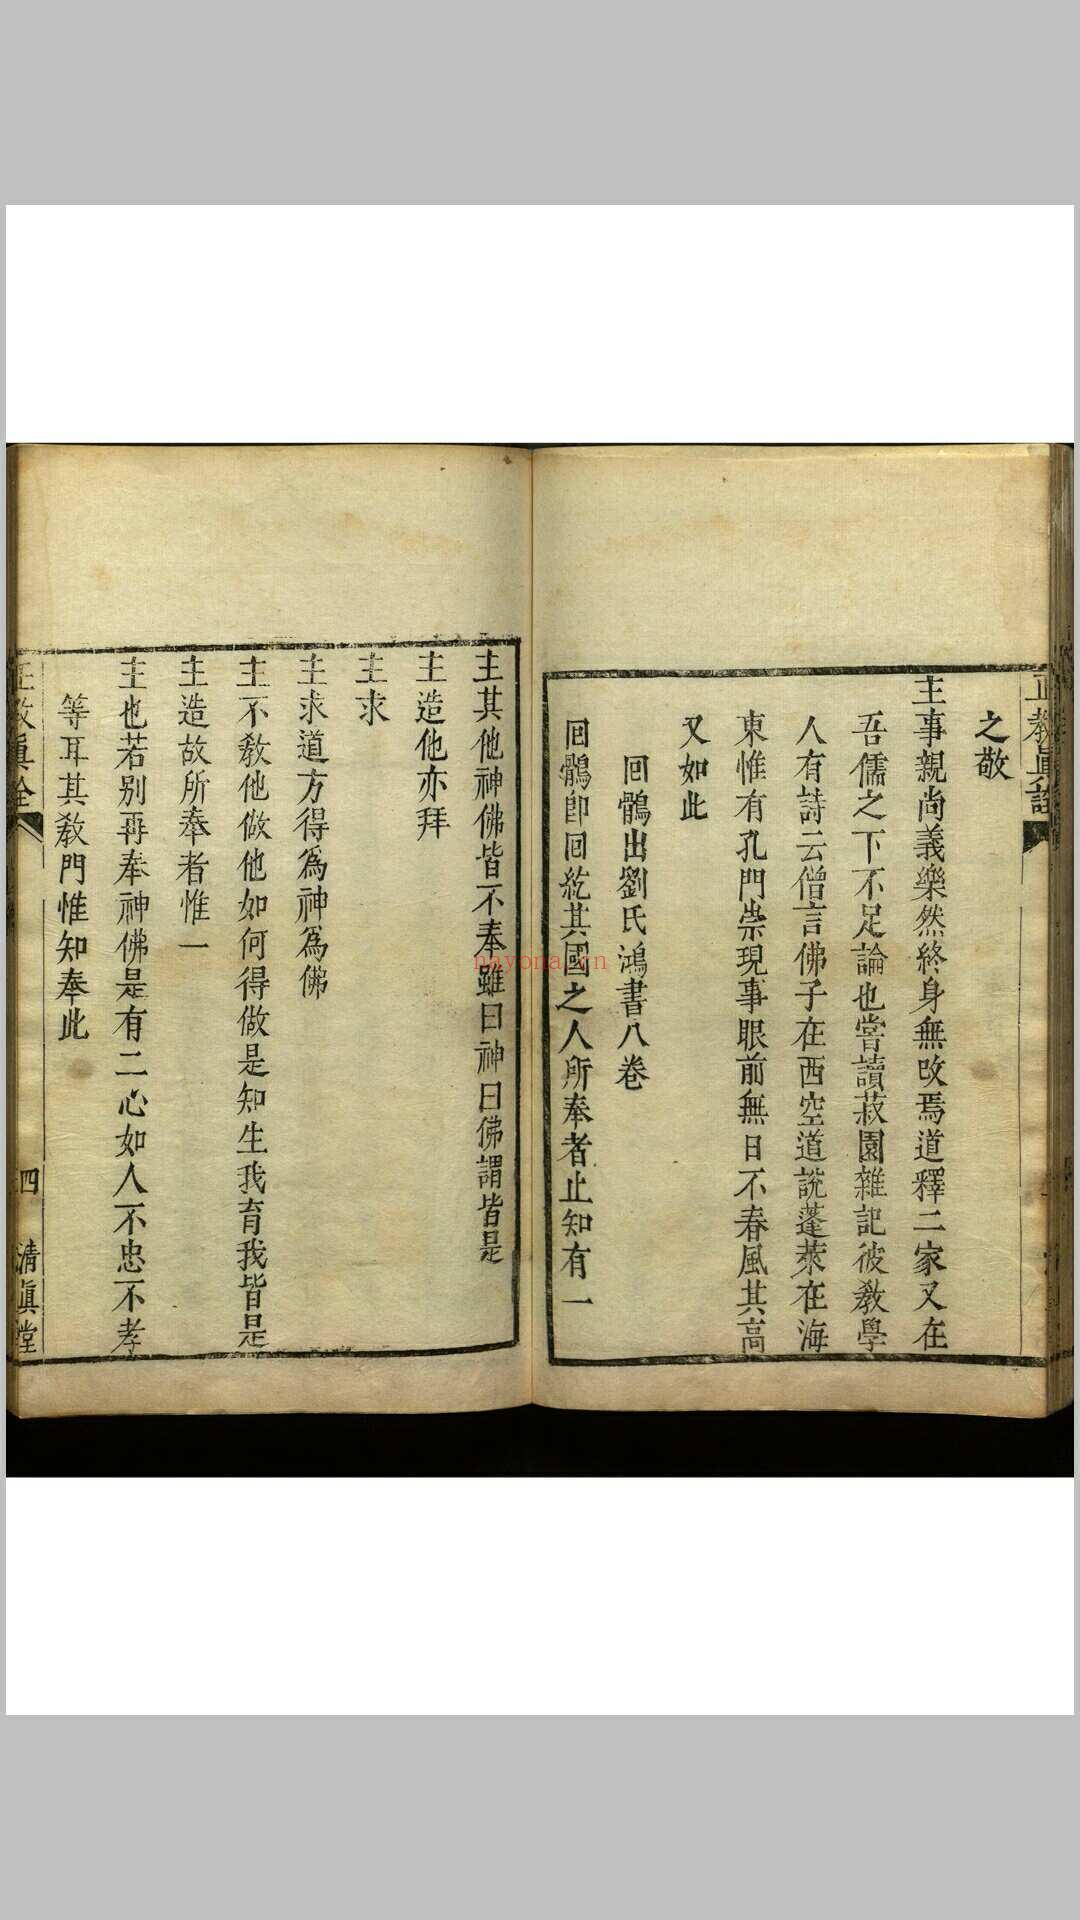 正教真詮
之敬
主事親尚義樂然終身無改焉道釋二家又在
吾儒之下不足論也嘗讀菽園雜記彼教學
人有詩云僧言佛子在西空道說蓬萊在海
東惟有孔門崇現事眼前無日不春風其高
又如此
回鶻出劉氏鴻書八卷
回鶻即回紇其國之人所奉者止知有一
主其他神佛皆不奉雖曰神曰佛謂皆是
主造他亦拜
主求
主求道方得爲神爲佛
主不教他做他如何得做是知生我育我皆是
主造故所奉者惟一
主也若别再奉神佛是有二心如人不忠不孝
等耳其教門惟知奉此
正教眞詮
四
清眞堂
nayona.cn